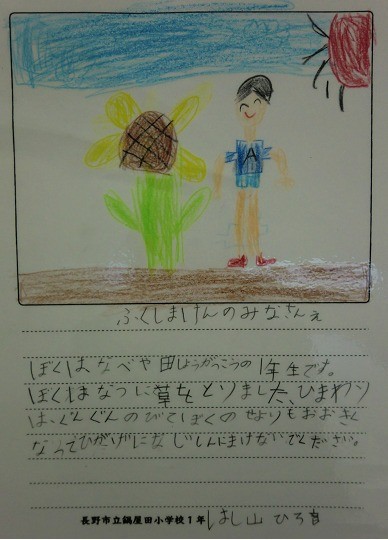 A
ふくしまけんのみなさんぇ
ぼくはなべや田しょうがっこうの1年生です。
ぼくはなつに草をとりました、ひまわり
は、ぐんぐんのびてぼくのせよりもおおきく
なってひがげにな じしんにまけないでください。
長野市立鍋屋田小学校1年 はし山 ひろ